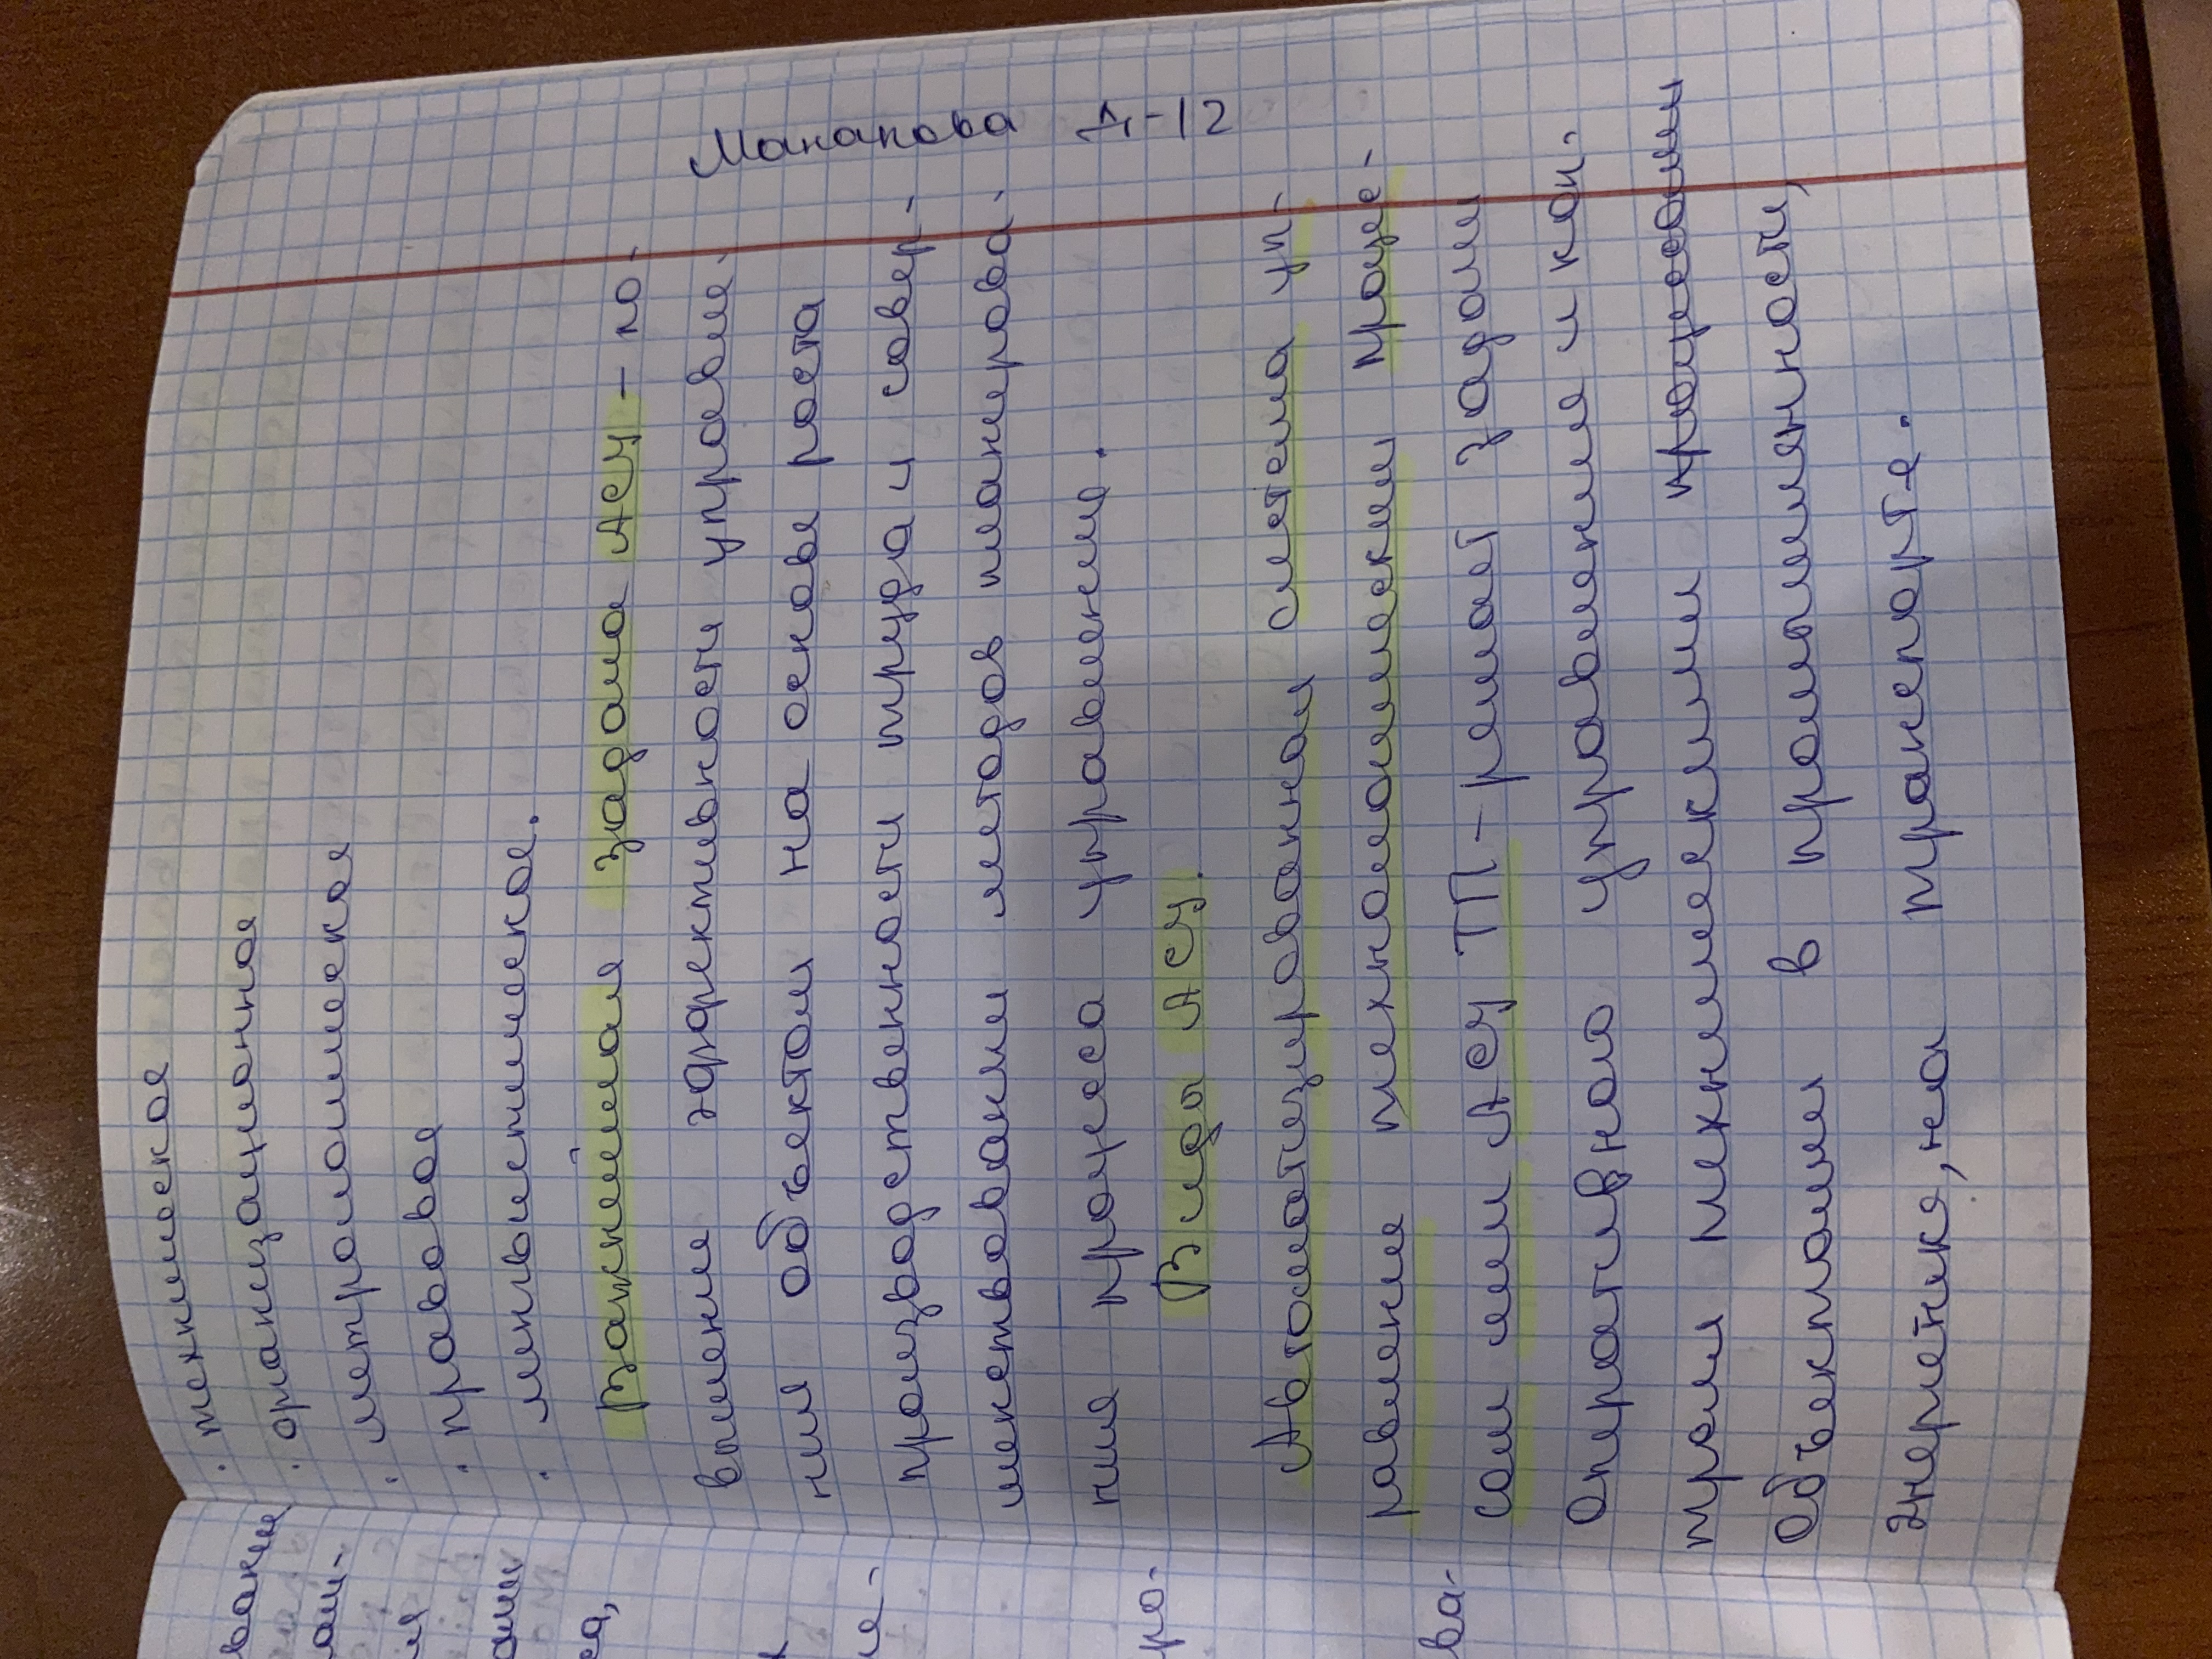 · техническое
· организационное
· метрологическое
· правовое
· лингвистическое.
Важнейшая задача АСУ – по-
вышение эффективности управле-
ния объектом на основе роста
производственности труда и совер-
шенствования методов планирова-
ния процесса управления.
Виды АСУ.
Автоматизированная система уп-
равление технологическим проце-
сом или АСУ ТП – решает задачи
оперативного управления и кон-
троля техническими процессами
объектами в промышленности,
энергетике, на транспорте.
Манапова Д-12
ро-
ва-